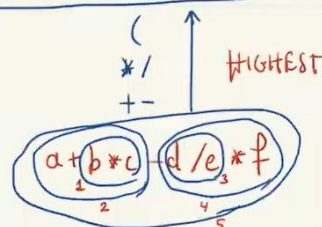 (
* /
HIGHEST
+ -
a + b * c - d / e * f
1 3
2 4
5